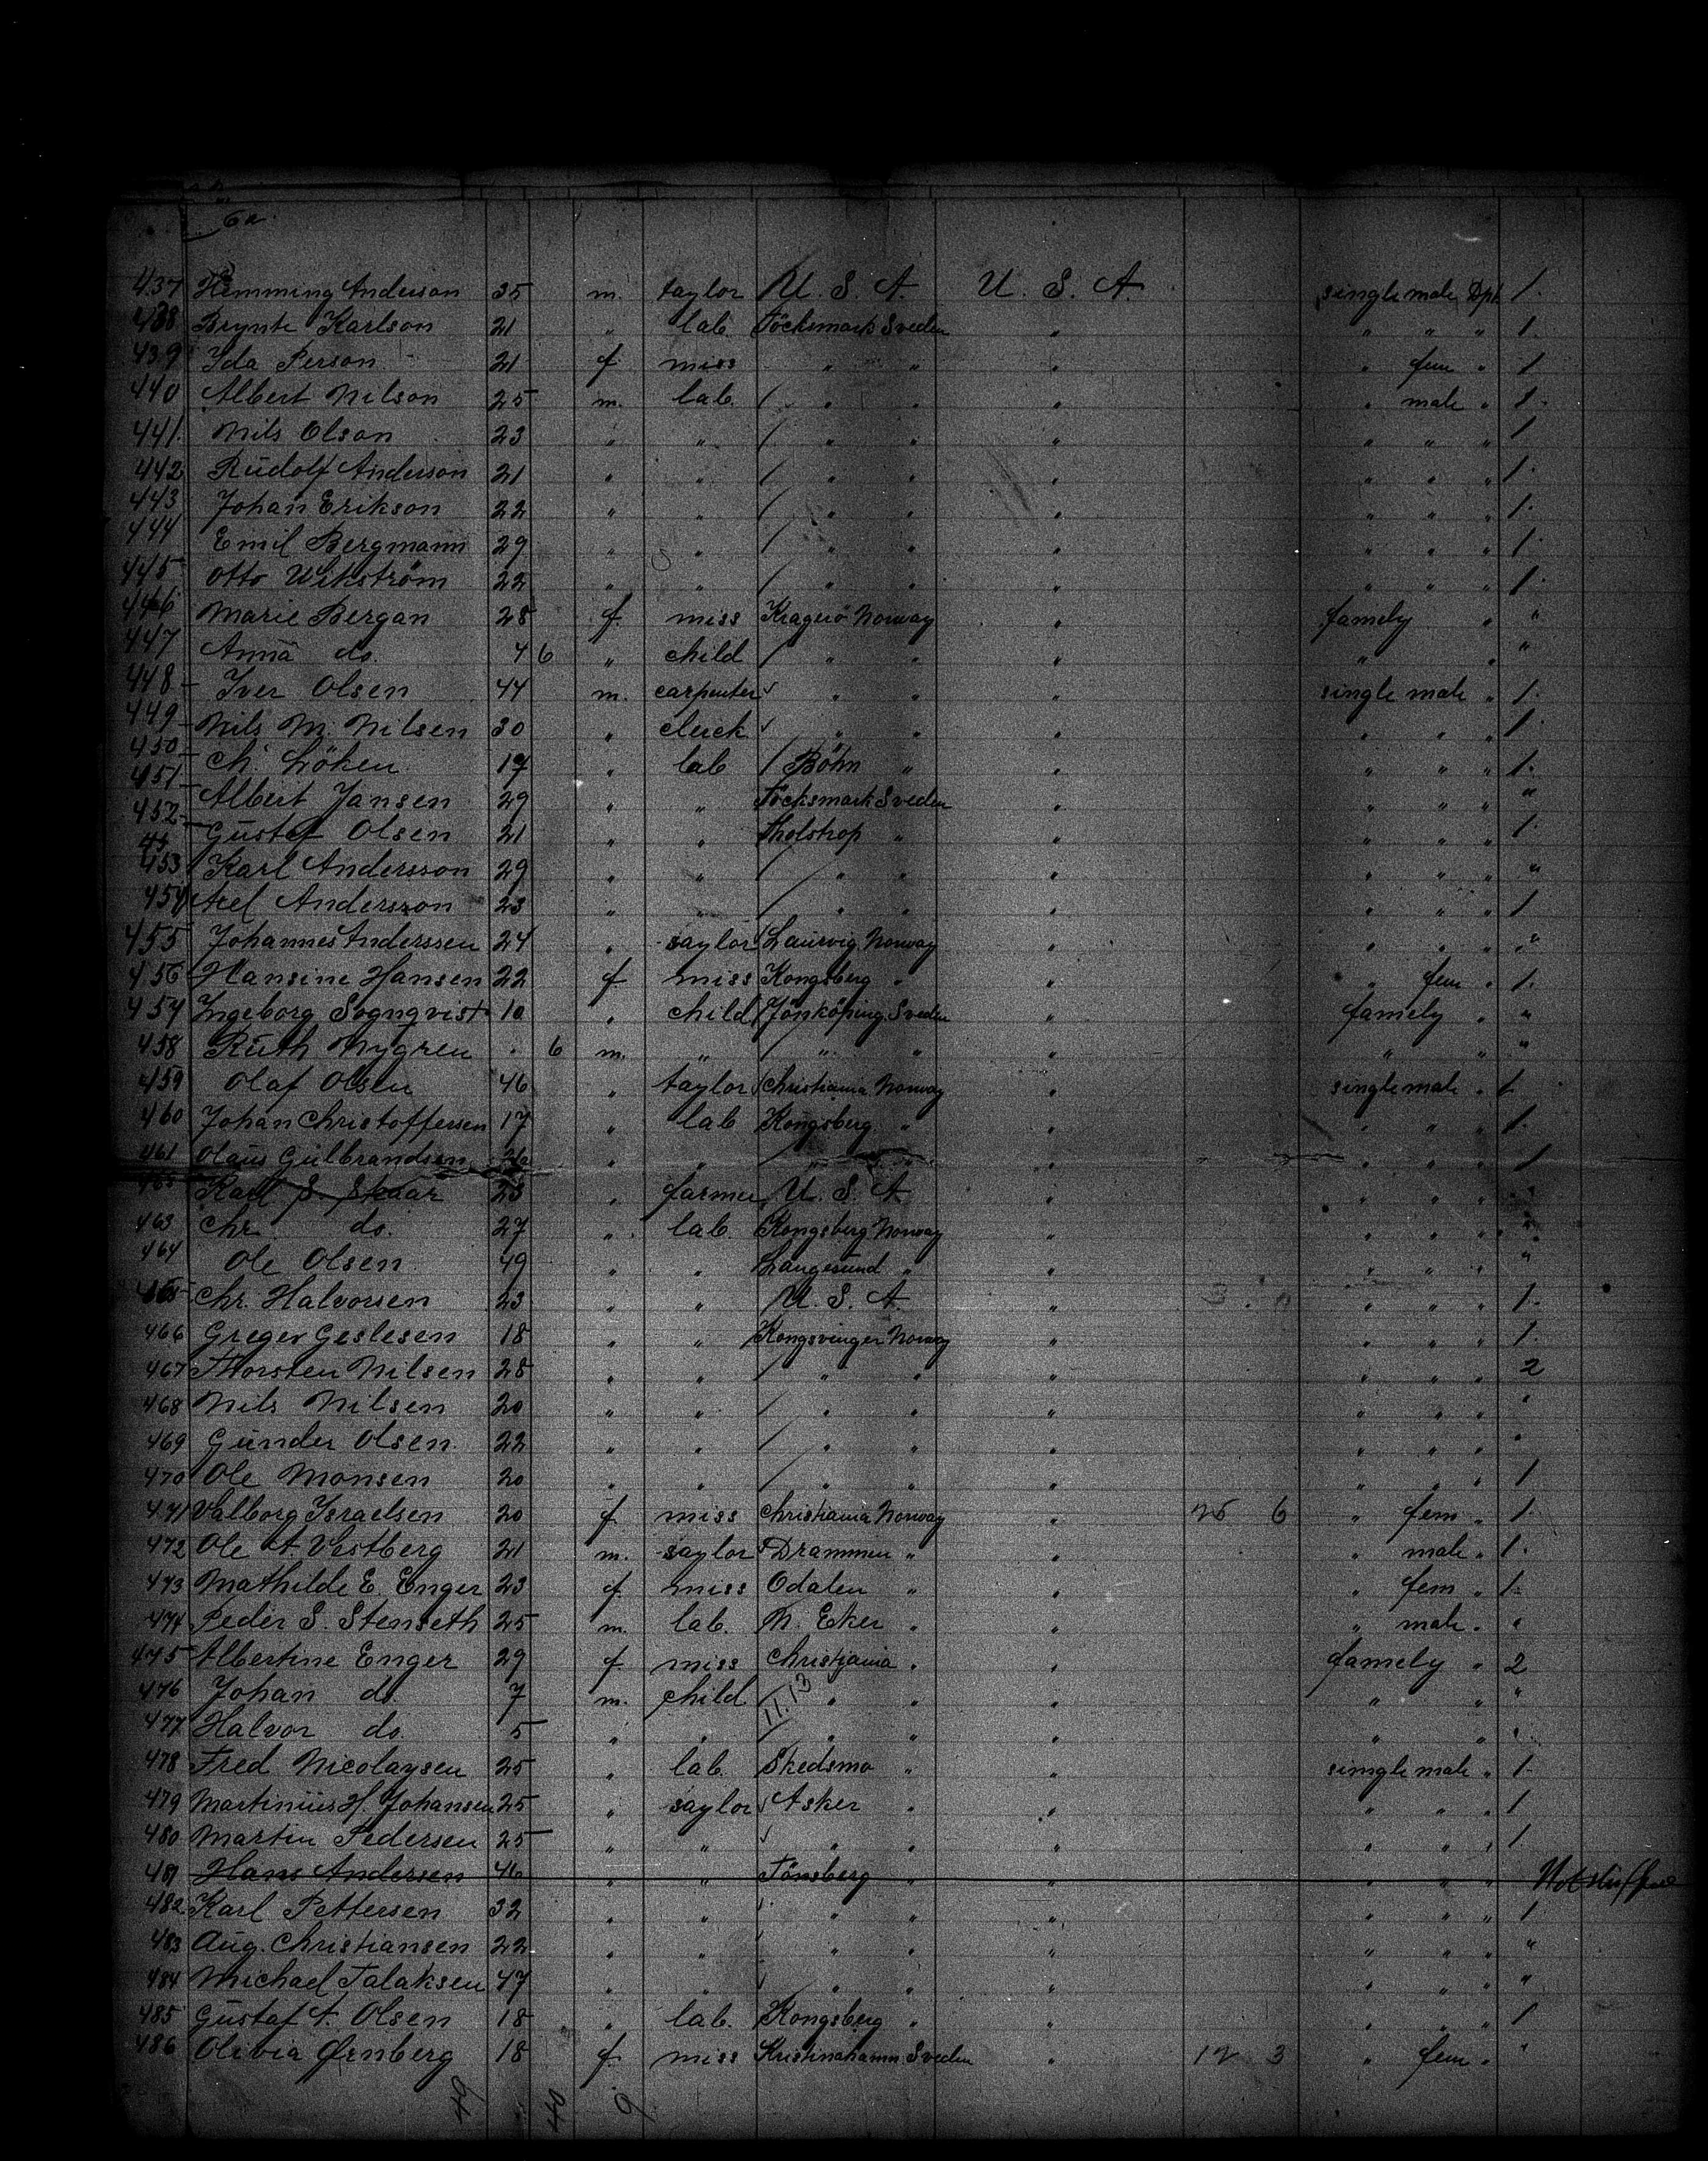 6a
437 Hemming Anderson 35 m. taylor U. S. A. U. S. A. single male Dpt 1.
438 Brynte Karlson 21 " lab. Töcksmark Sveden " " " " 1.
439 Ida Person 21 f. miss " " " " fem " 1
440 Albert Nilson 25 m. lab. " " " " male " 1.
441. Nils Olson 23 " " " " " " " " 1
442 Rudolf Anderson 21 " " " " " " " " 1.
443 Johan Erikson 22 " " " " " " " " 1.
444 Emil Bergmann 29 " " " " " " " " 1.
445 Otto Wikström 22 " " " " " " " " 1.
446 Marie Bergan 28 f. miss Kragerö Norway " famely " "
447 Anna do. 4 6 " child " " " " " "
448 Iver Olsen 44 m. carpenter " " " single male " 1.
449 Nils M. Nilsen 30 " clerck " " " " " " 1.
450 Ch. Löken 17 " lab Böhn " " " " " 1.
451 Albert Jansen 29 " " Töcksmark Sveden " " " " "
452 Gustaf Olsen 21 " " " " " " " 1.
453 Karl Andersson 29 " " " " " " " " "
454 Axel Andersson 23 " " " " " " " " 1
455 Johannes Anderssen 24 " saylor Laurvig Norway " " " " "
456 Hansine Hansen 22 f miss Kongsberg " " " fem " 1.
457 Ingeborg Sognqvist 10 " child Jönköping Sveden " famely " "
458 Ruth Nygren " 6 m. " " " " " " "
459 Olaf Olsen 46 " taylor Christiania Norway " single male " 1
460 Johan Christoffersen 17 " lab Kongsberg " " " " " 1.
461 Olaus Gulbrandsen " " " " " " " " 1
Karl S. Skaar 23 " farmer U. S. A " " " " "
463 Chr. do. 27 " lab. Kongsberg Norway " " " " "
464 Ole Olsen 49 " " Langesund " " " " " "
465 Chr. Halvorsen 23 " " U. S. A. " " " " 1.
466 Greger Geslesen 18 " " Kongsvinger Norway " " " " 1.
467 Thorsten Nilsen 28 " " " " " " " " 2
468 Nils Nilsen 20 " " " " " " " " "
469 Gunder Olsen 22 " " " " " " " " "
470 Ole Monsen 20 " " " " " " " " 1
471 Valborg Israelsen 20 f. miss Christiania Norway " 6 " fem " 1.
472 Ole A. Vestberg 21 m. saylor Drammen " " " male " 1.
473 Mathilde E. Enger 23 f. miss Odalen " " " fem " 1.
474 Peder S. Stenseth 25 m. lab. N. Eker " " " male " "
475 Albertine Enger 29 f miss Christiania " " famely " 2
476 Johan do. 7 m. child 11.13 " " " " " "
477 Halvor do. 5 " " " " " " " "
478 Fred Nicolaysen 25 " lab. Skedsmo " " single male " 1.
479 Martinius H. Johansen 25 " saylor Asker " " " " " 1
480 Martin Pedersen 25 " " " " " " " " 1
481 Hans Andersen 46 " " Tönsberg " " " " " Not
482 Karl Pettersen 32 " " " " " " " " 1
483 Aug. Christiansen 22 " " " " " " " " "
484 Michael Talaksen 47 " " " " " " " " "
485 Gustaf A. Olsen 18 " lab. Kongsberg " " " " " 1
486 Olivia Ørnberg 18 f. miss Kristinahamn Sveden " 12 3 " fem " "
49 40 9